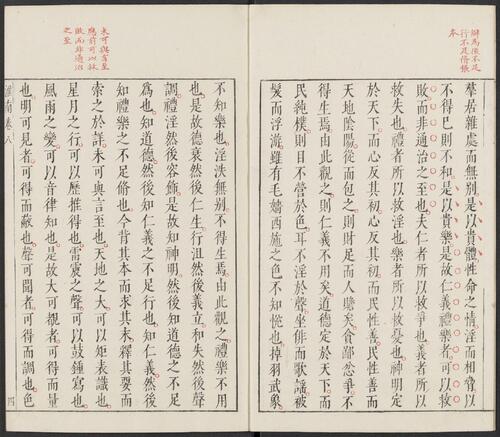 為後不足
行不足脩張
本
羣居雜處而無別是以貴禮性命之情淫而相脅以
不得已則不和是以貴樂是故仁義禮樂者可以救
敗而非通治之至也夫仁者所以救爭也義者所以
救失也禮者所以救淫也樂者所以救憂也神明定
於天下而心反其初心反其初而民性善民性善而
天地陰陽從而包之則財足而人贍矣貪鄙忿爭不
得生焉由此觀之則仁義不用矣道德定於天下而
民純樸則目不營於色耳不淫於聲坐俳而歌謠被
髮而浮游雖有毛嬙西施之色不知悅也掉羽武象
未可與言至
應前可以救
敗而非通治
之至
不知樂也淫泆無別不得生焉由此觀之禮樂不用
也是故德衰然後仁生行沮然後義立和失然後聲
調禮淫然後容飾是故知神明然後知道德之不足
為也知道德然後知仁義之不足行也知仁義然後
知禮樂之不足脩也今背其本而求其末釋其要而
索之於詳未可與言至也天地之大可以矩表識也
星月之行可以歷推得也雷震之聲可以鼓鐘寫也
風雨之變可以音律知也是故大可覩者可得而量
也明可見者可得而蔽也聲可聞者可得而調也色
淮南卷八
四